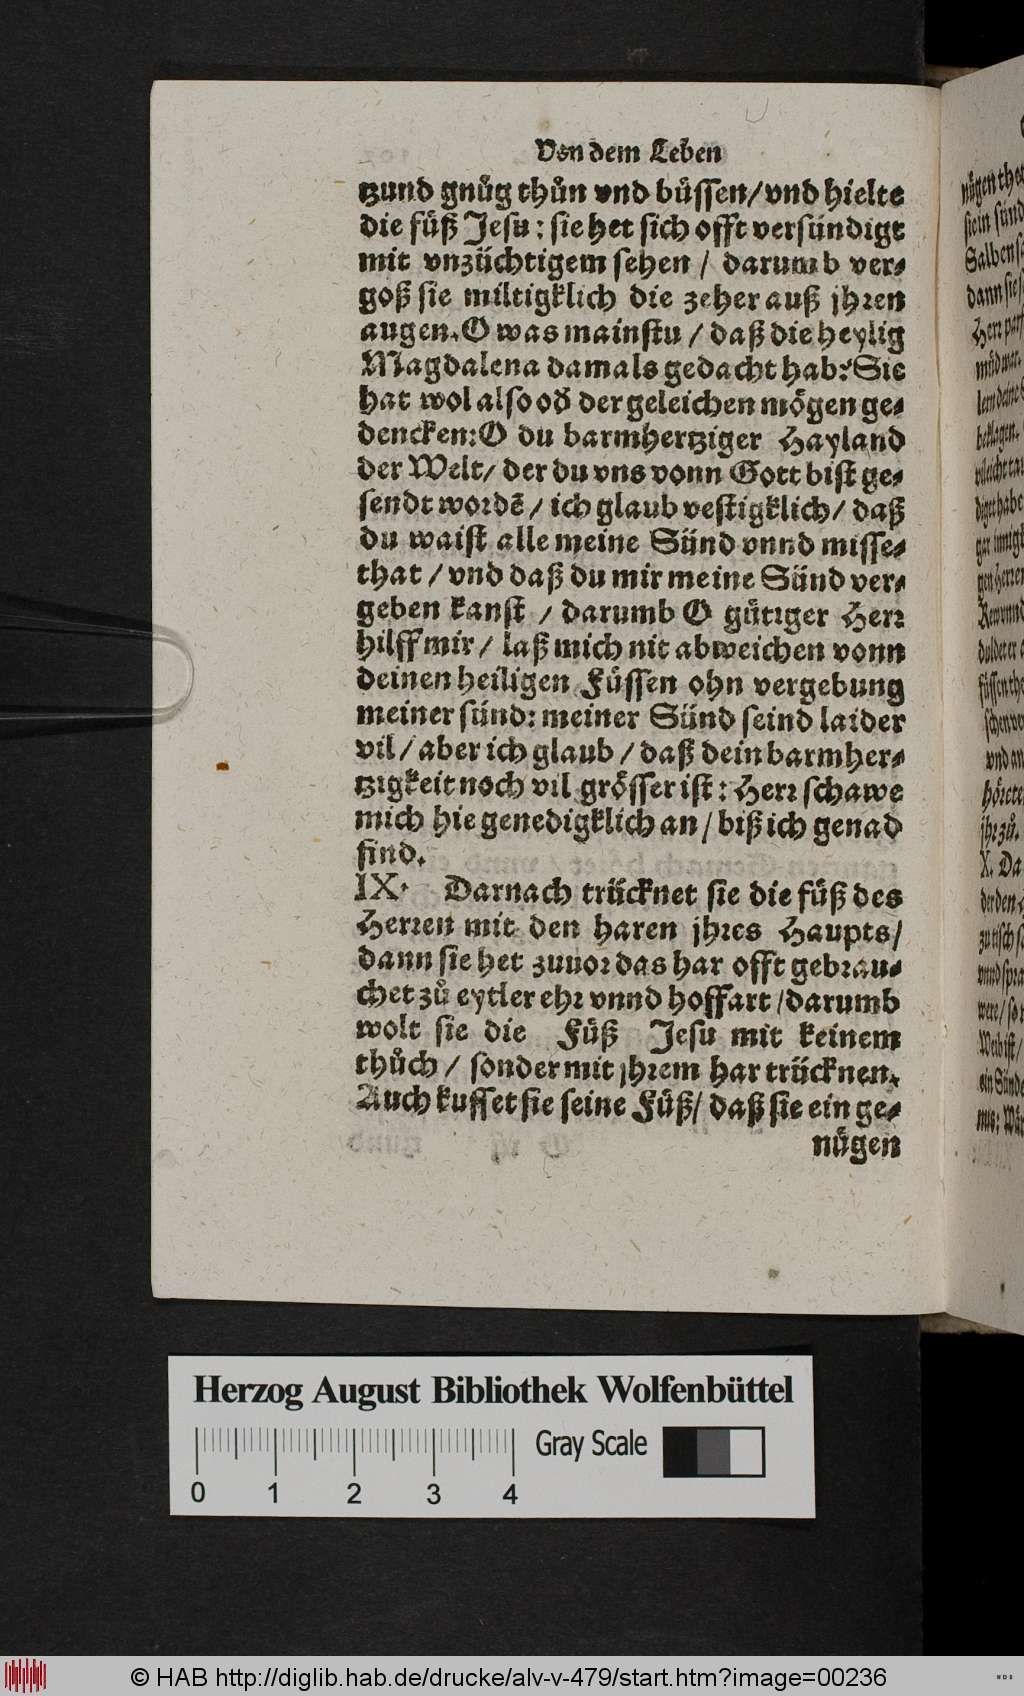 Von dem Leben
tzund gnůg thůn vnd büssen/vnd hielte
die füß Jesu: sie het sich offt versündigt
mit vnzüchtigem sehen / darumb ver-
goß sie miltigklich die zeher auß jhren
augen. O was mainstu / daß die heylig
Magdalena damals gedacht hab? Sie
hat wol also od der geleichen mögen ge-
dencken: O du barmhertziger Hayland
der Welt/ der du vns vonn Gott bist ge-
sendt wordē / ich glaub vestigklich/ daß
du waist alle meine Sünd vnnd misse-
that / vnd daß du mir meine Sünd ver-
geben kanst / darumb O gütiger Herr
hilff mir / laß mich nit abweichen vonn
deinen heiligen Füssen ohn vergebung
meiner sünd: meiner Sünd seind laider
vil / aber ich glaub / daß dein barmher-
tzigkeit noch vil grösser ist: Herr schawe
mich hie genedigklich an / biß ich genad
find.
IX. Darnach trücknet sie die füß des
Herren mit den haren jhres Haupts/
dann sie het zuuor das har offt gebrau-
chet zů eytler ehr vnnd hoffart /darumb
wolt sie die Füß Jesu mit keinem
thůch / sonder mit jhrem har trücknen.
Auch kusset sie seine Füß/ daß sie ein ge-
nügen
nügen
Salben
dann sie
Herr
lem deine
beklagen.
gen Herren
dultet er
füssen
vnd
hörete
jhr zů.
X. Da
der den
zu tisch
vnnd
were / so
Weib ist /
ein
Herzog August Bibliothek Wolfenbüttel
0 1 2 3 4
Gray Scale
© HAB http://diglib.hab.de/drucke/alv-v-479/start.htm?image=00236